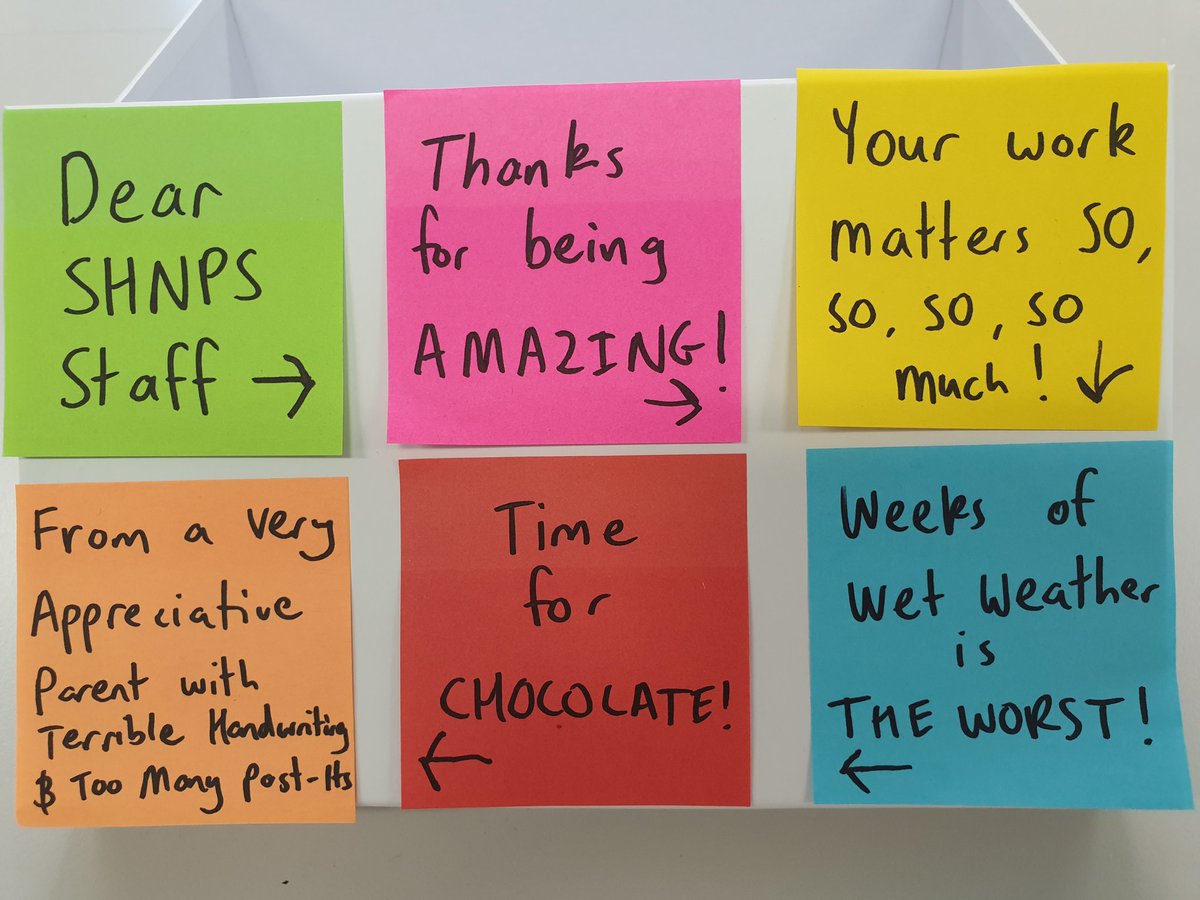 Dear
SHNPS
Staff →
Thanks
for being
AMAZING!
→
Your work
matters SO,
so, so, so
much! ↓
Weeks of
Wet Weather
is
THE WORST!
←
Time
for
CHOCOLATE!
←
From a very
Appreciative
Parent with
Terrible Handwriting
& Too Many Post-Its